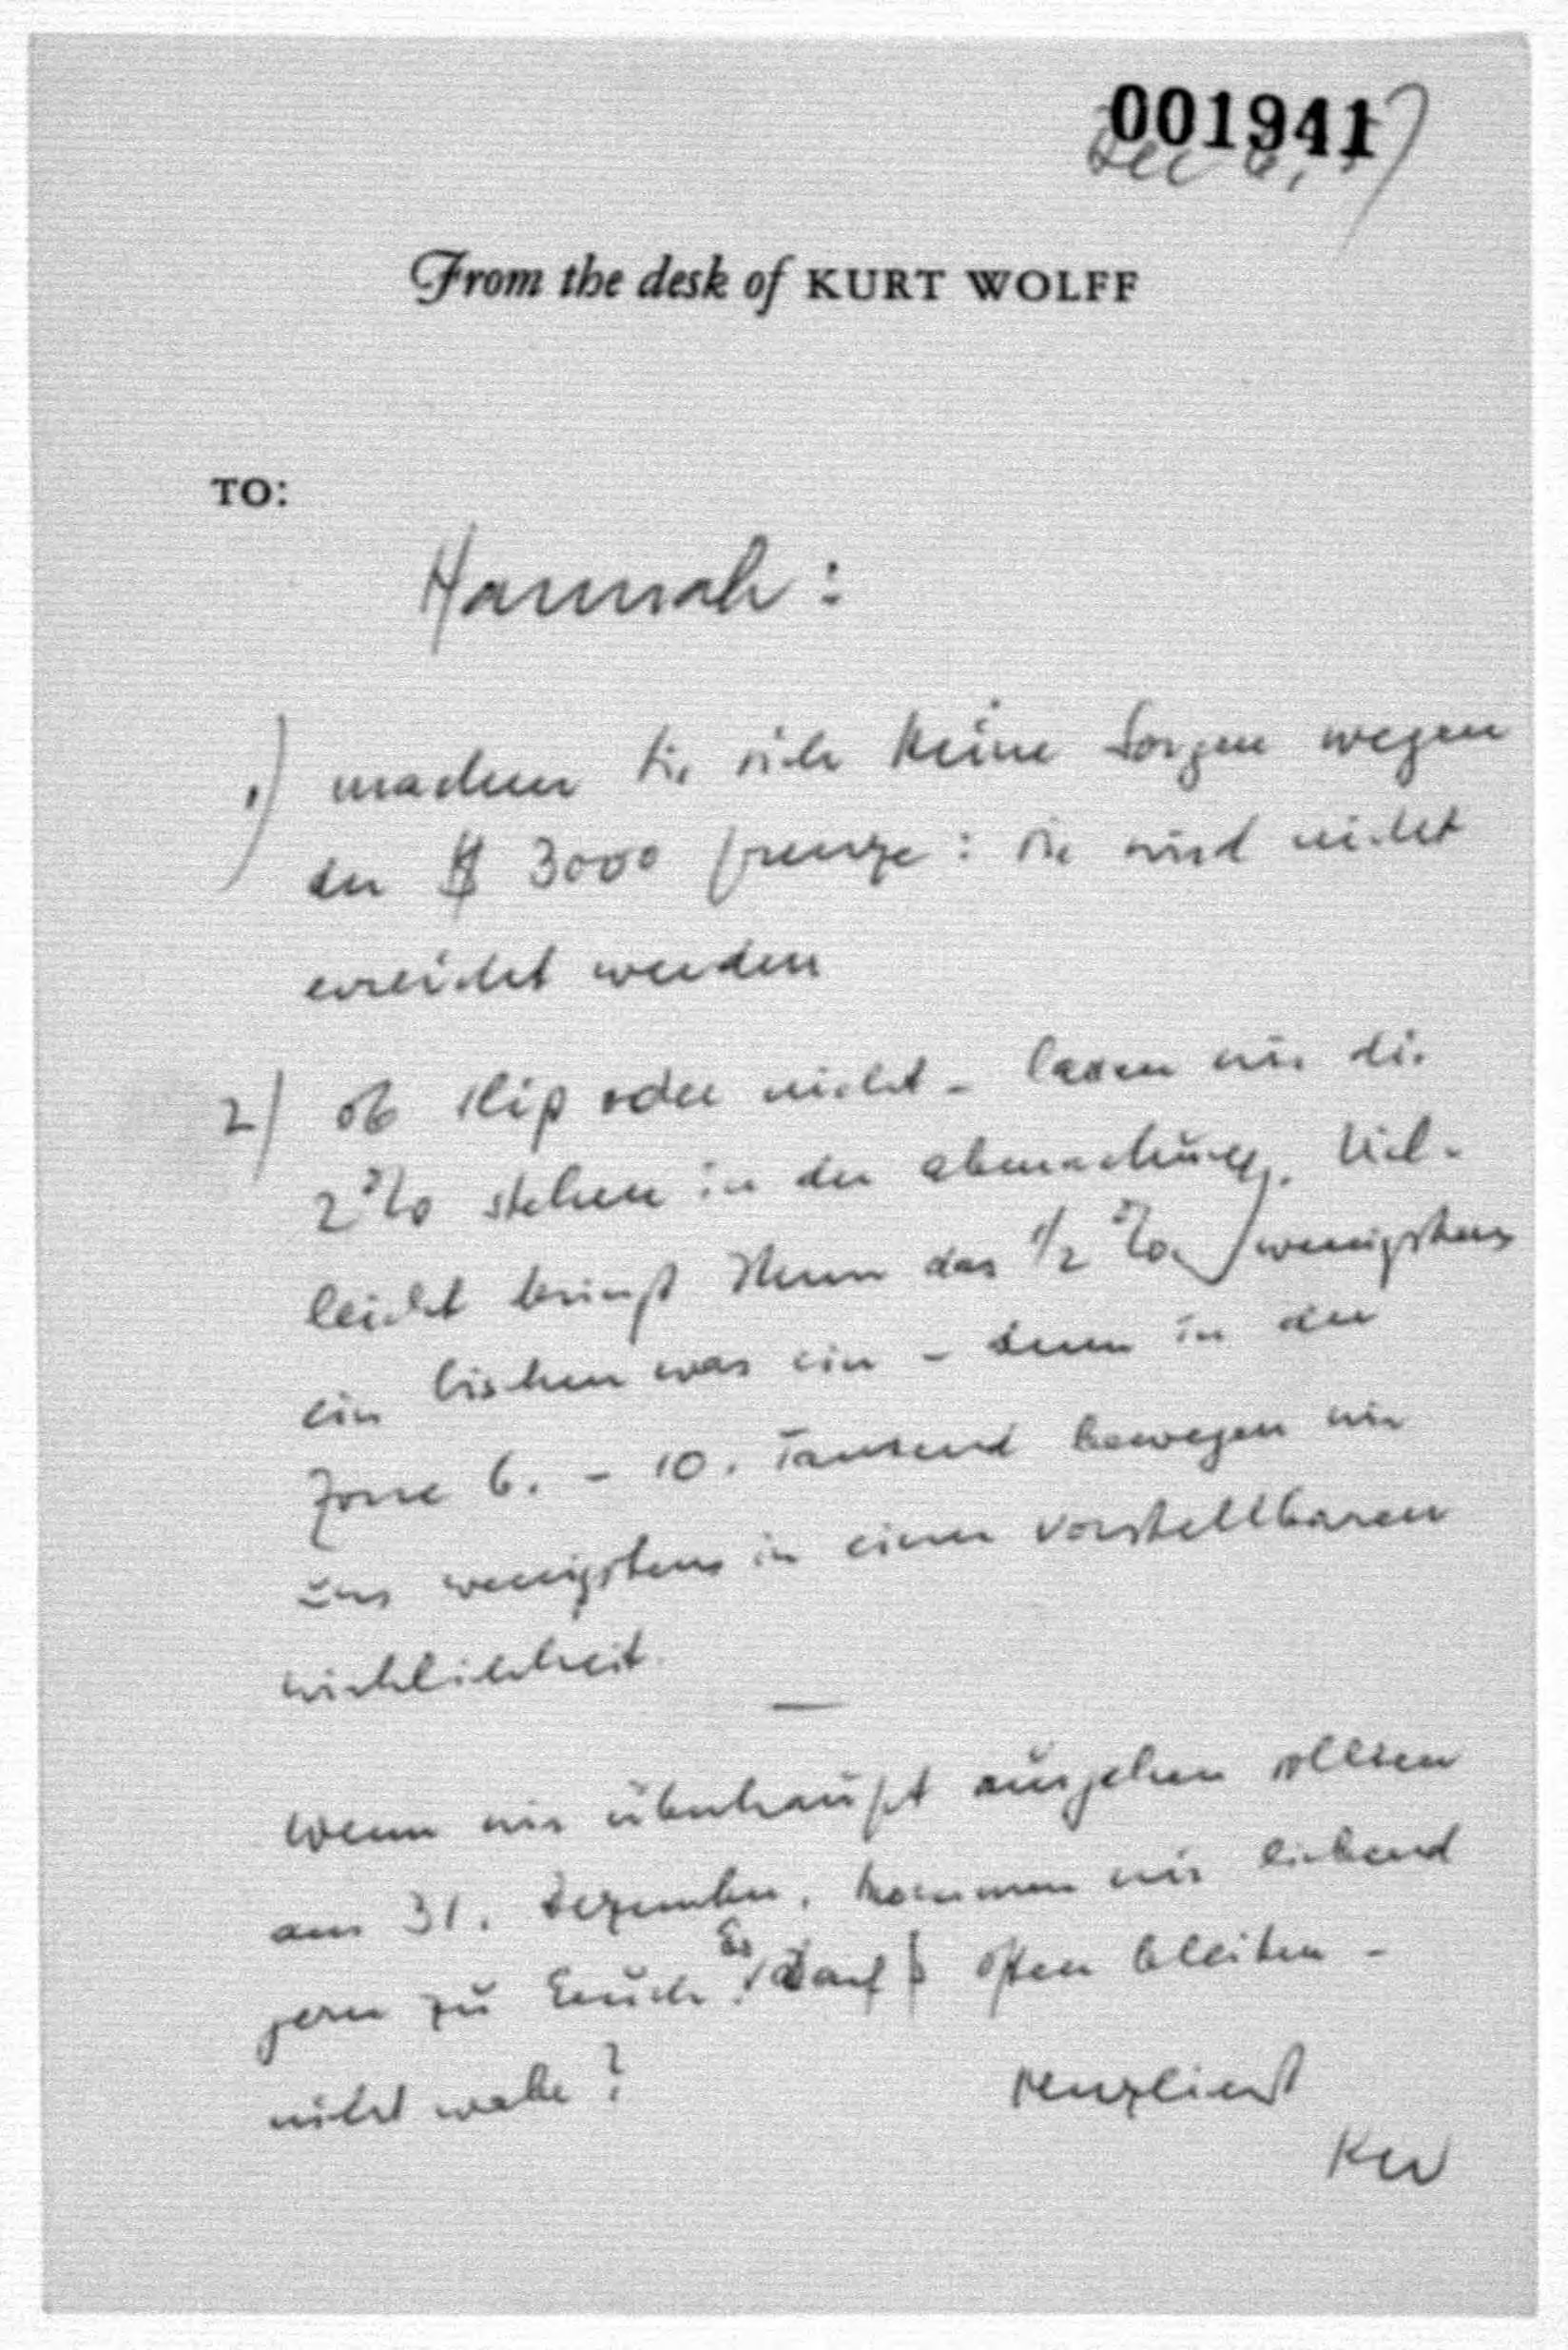 001941
Dec 6, 57
From the desk of KURT WOLFF
TO:
Hannah:
1) machen Sie sich keine Sorgen wegen
der $ 3000 Grenze: sie wird nicht
erreicht werden
2) ob Klip oder nicht - lassen wir die
2% stehen in der Abmachung. Viel-
leicht bringt Ihnen das 1/2 % wenigstens
ein bischen was ein - denn in der
Zone 6. - 10. Tausend bewegen wir
uns wenigstens in einer vorstellbaren
Wirklichkeit.
—
Wenn wir überhaupt ausgehen sollten
am 31. Dezember, kommen wir liebend
gern zu Euch. Es darf offen bleiben -
nicht wahr?
Herzlichst
KW